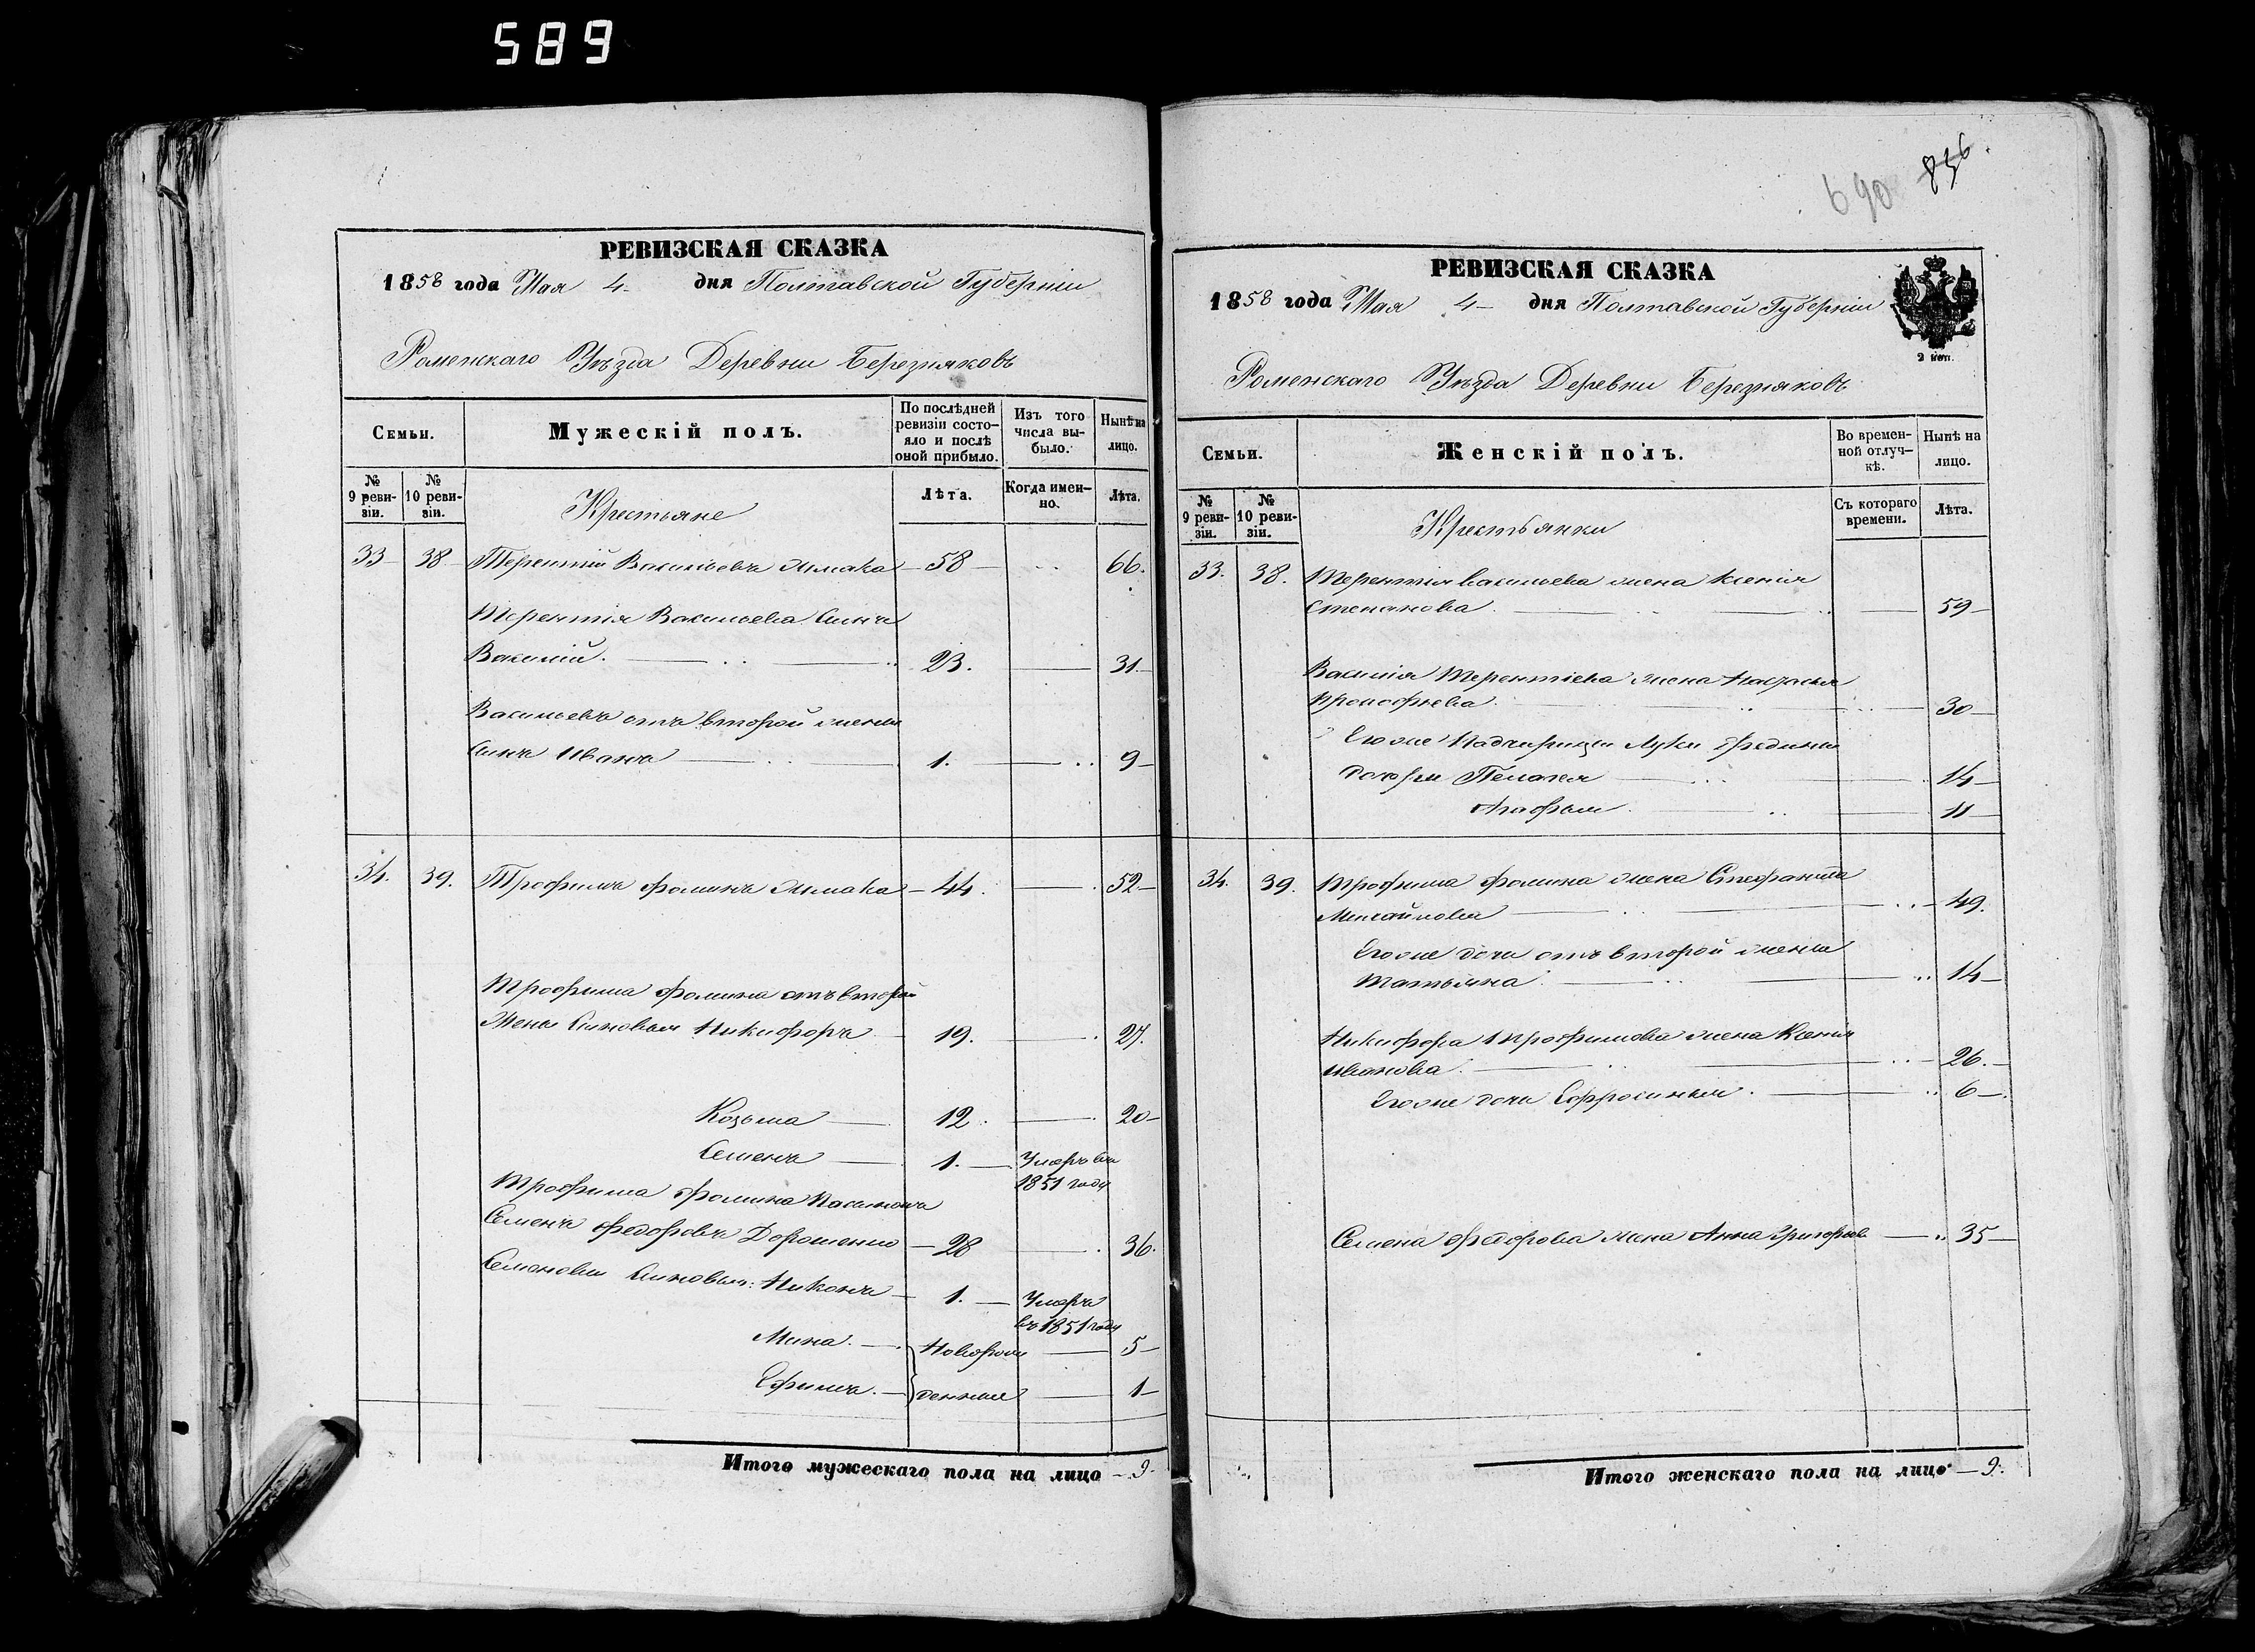 589
РЕВИЗСКАЯ СКАЗКА
1858 года Мая 4 дня Полтавской Губерніи
Роменскаго Уѣзда Деревни Березняковъ
Семьи.
Мужескій полъ.
По послѣдней ревизіи состо-
яло и послѣ оной прибыло.
Изъ того числа вы-
было.
Нынѣ на лицо.
№ 9 реви-
зіи.
№ 10 реви-
зіи.
Крестьяне
Лѣта.
Когда имен-
но.
Лѣта.
33 38 Терентій Васильевъ 58 66.
Терентія Васильева Сынъ
Василій. 23. 31.
Васильевъ отъ второй жены
Сынъ Иванъ 1. 9
34. 39. Трофимъ Фоминъ 44. 52
Трофима Фомина отъ второй
Жены Сыновья Никифоръ 19. 27.
Козьма 12. 20
Семенъ 1. Умеръ въ
1851 году
Трофима Фомина Пасынокъ
Семенъ Федоровъ Дорошенко 28 36.
Семеновы Сыновья: Никонъ 1. Умеръ
въ 1851 году
Мина. Новорож 5
Ефимъ. денные 1
Итого мужескаго пола на лицо 9
690 836
РЕВИЗСКАЯ СКАЗКА
1858 года Мая 4 дня Полтавской Губерніи
2 коп.
Роменскаго Уѣзда Деревни Березняковъ
Семьи.
Женскій полъ.
Во времен-
ной отлуч-
кѣ.
Нынѣ на лицо.
№ 9 реви-
зіи.
№ 10 реви-
зіи.
Крестьянки
Съ котораго времени.
Лѣта.
33. 38. Терентія Васильева жена Ксенія
Степанова 59
Василія Терентіева жена Настасья
Прокофьева 30
Его же Падчерицы Луки
дочери Пелагея 14
Агафья 11
34. 39. Трофима Фомина жена Стефанида
Михайлова 49.
Его же дочь отъ второй жены
Татьяна 14
Никифора Трофимова жена Ксенія
Иванова 26.
Его же дочь Ефросинья. 6
Семена Федорова жена Анна Григорьев 35
Итого женскаго пола на лицо 9.